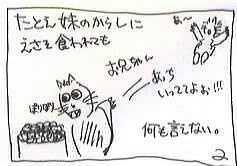 たとえ妹のからしに
えさを食われても
お兄ちゃ〜
あ〜
あっち
いっててよぉ!!!
ぽりぽり
何も言えない。
2